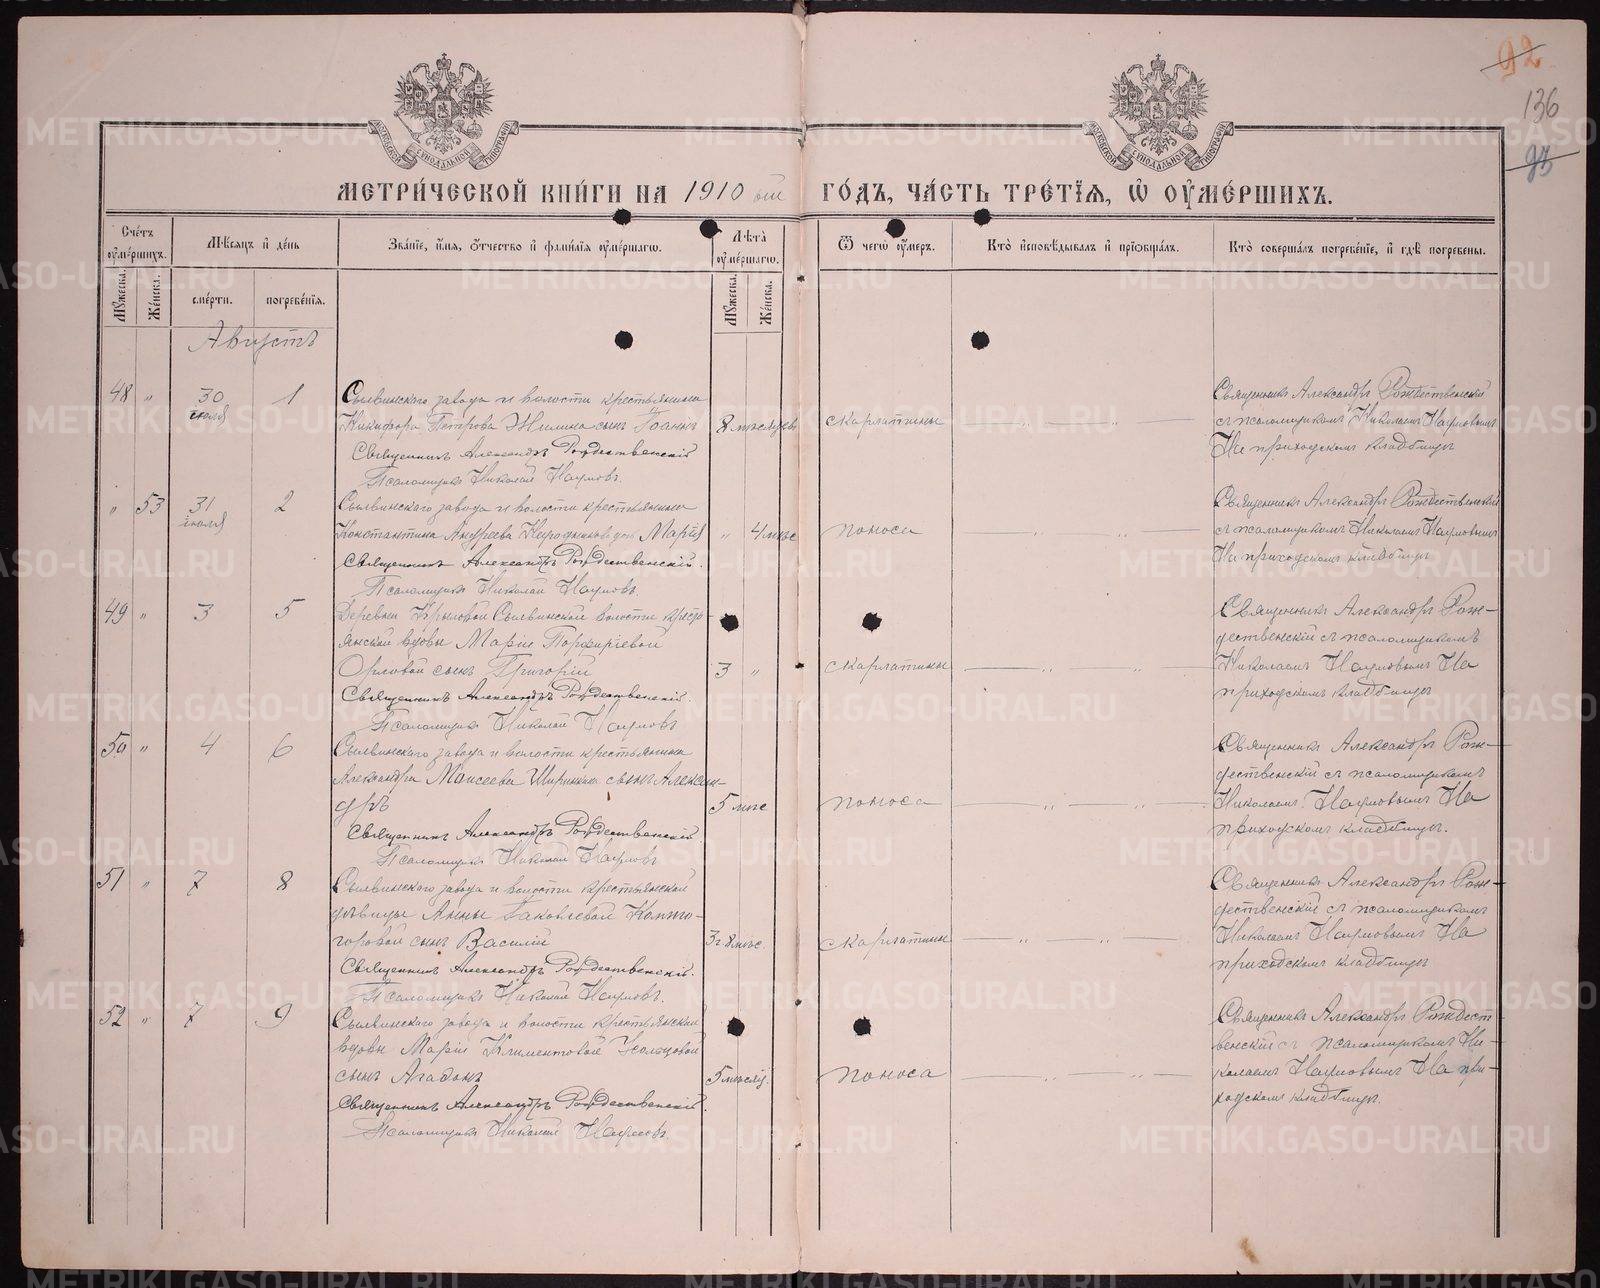 92
136
93
МЕТРИ́ЧЕСКОЙ КНИ́ГИ НА 1910 ый ГО́ДЪ, ЧА́СТЬ ТРЕ́ТІЯ, Ѡ ОУМЕ́РШИХЪ.
Счетъ оумершихъ.
Мѣсяцъ и день
Званіе, имя, отчество и фамилія оумершагѡ.
Лѣта оумершагѡ.
Ѿ чегѡ оумеръ.
Кто исповѣдывалъ и пріобщалъ.
Кто совершалъ погребеніе, и гдѣ погребены.
Мужеска.
Женска.
смерти.
погребенія.
Мужеска.
Женска.
Августъ
48 " 30 іюля 1
Сылвинскаго завода и волости крестьянина
Никифора Петрова сынъ Іоаннъ
8 мѣсяцевъ
скарлатины
Священникъ Александръ Рождественскій
съ псаломщикомъ Николаемъ Наумовымъ
На приходскомъ кладбищѣ
Священникъ Александръ Рождественскій
Псаломщикъ Николай Наумовъ.
" 53 31 іюля 2
Сылвинскаго завода и волости крестьянина
Константина Андреева дочь Марія
" 4 мѣс
поноса
Священникъ Александръ Рождественскій
съ псаломщикомъ Николаемъ Наумовымъ
На приходскомъ кладбищѣ
Священникъ Александръ Рождественскій.
Псаломщикъ Николай Наумовъ.
49 " 3 5
Деревни Крыловой Сылвинской волости кресть-
янской вдовы Маріи Порфиріевой
Орловой сынъ Григорій
3 "
скарлатины
Священникъ Александръ Рож-
дественскій съ псаломщикомъ
Николаемъ Наумовымъ На
приходскомъ кладбищѣ
Священникъ Александръ Рождественскій.
Псаломщикъ Николай Наумовъ
50 " 4 6
Сылвинскаго завода и волости крестьянина
Александра Моисеева Ширинкина сынъ Алексан-
дръ
5 мѣс
поноса
Священникъ Александръ Рож-
дественскій съ псаломщикомъ
Николаемъ Наумовымъ На
приходскомъ кладбищѣ.
Священникъ Александръ Рождественскій
Псаломщикъ Николай Наумовъ
51 " 7 8
Сылвинскаго завода и волости крестьянской
дѣвицы Анны Іаковлевой
горовой сынъ Василій
3 г 8 мѣс.
скарлатины
Священникъ Александръ Рож-
дественскій съ псаломщикомъ
Николаемъ Наумовымъ На
приходскомъ кладбищѣ
Священникъ Александръ Рождественскій.
Псаломщикъ Николай Наумовъ.
52 " 7 9
Сылвинскаго завода и волости крестьянской
вдовы Маріи Климентовой Усольцовой
сынъ Агафонъ
5 мѣсяц.
поноса
Священникъ Александръ Рождест-
венскій съ псаломщикомъ Ни-
колаемъ Наумовымъ На при-
ходскомъ кладбищѣ.
Священникъ Александръ Рождественскій.
Псаломщикъ Николай Наумовъ.
METRIKI.GASO-URAL.RU